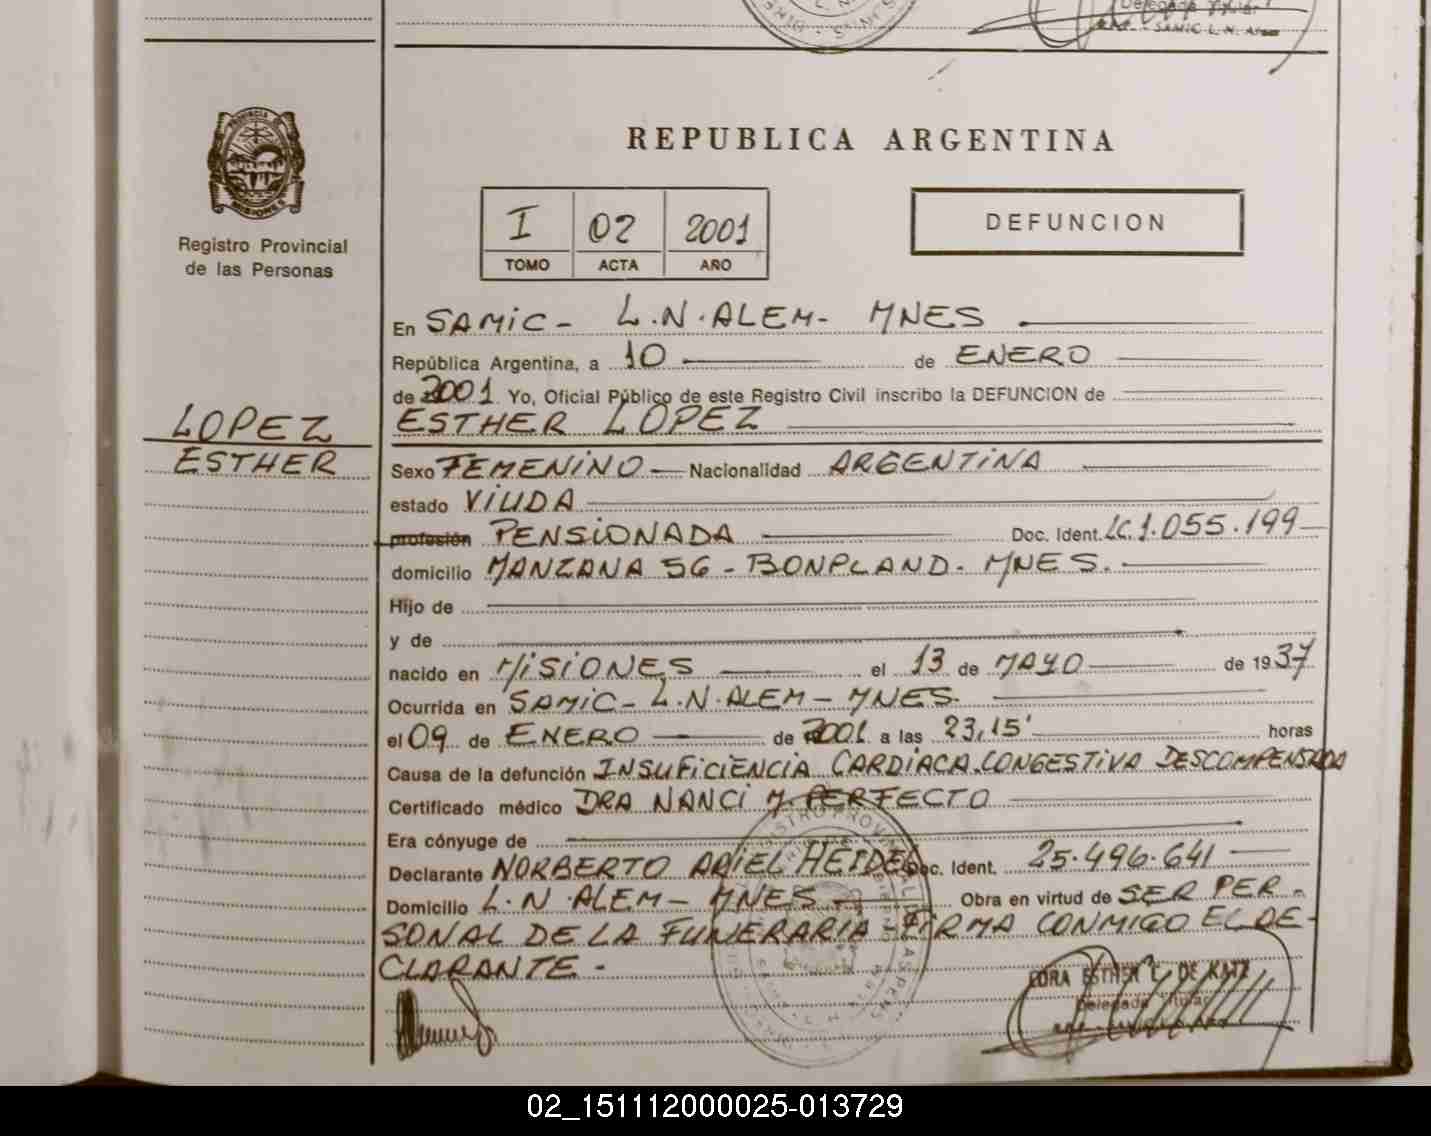 Delegada Titular
SAMIC L. N. Alem
PROVINCIA DE
MISIONES
Registro Provincial
de las Personas
REPUBLICA ARGENTINA
I 02 2001
TOMO ACTA AÑO
DEFUNCION
En SAMIC - L.N. ALEM - MNES
República Argentina, a 10 de ENERO
de 2001 Yo, Oficial Público de este Registro Civil inscribo la DEFUNCION de
LOPEZ
ESTHER
ESTHER LOPEZ
Sexo FEMENINO Nacionalidad ARGENTINA
estado VIUDA
profesión PENSIONADA Doc. Ident. LC. 1.055.199
domicilio MANZANA 56 - BONPLAND. MNES.
Hijo de
y de
nacido en MISIONES el 13 de MAYO de 1937
Ocurrida en SAMIC - L.N. ALEM - MNES.
el 09 de ENERO de 2001 a las 23,15' horas
Causa de la defunción INSUFICIENCIA CARDIACA CONGESTIVA DESCOMPENSADA
Certificado médico DRA NANCI M. PERFECTO
Era cónyuge de
Declarante NORBERTO ARIEL HEIDE Doc. Ident. 25.496.641
Domicilio L.N. ALEM - MNES Obra en virtud de SER PER-
SONAL DE LA FUNERARIA - FIRMA CONMIGO EL DE-
CLARANTE -
ESTHER L. DE KATZ
Delegada Titular
02_151112000025-013729